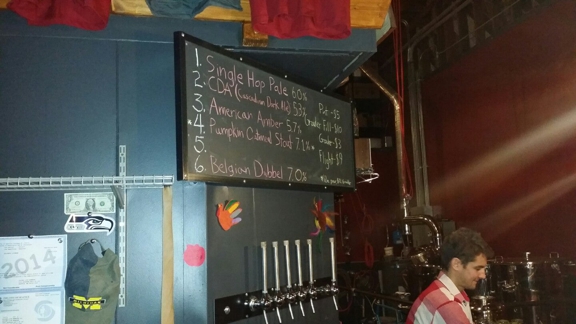 1. Single Hop Pale 6.0%
2. CDA (Cascadian Dark Ale) 5.3%
3. American Amber 5.7%
*4. Pumpkin Oatmeal Stout 7.1%*
5.
6. Belgian Dubbel 7.0%
Pint-$5
Growler Fill-$10
Growler-$3
Flight-$9
2014